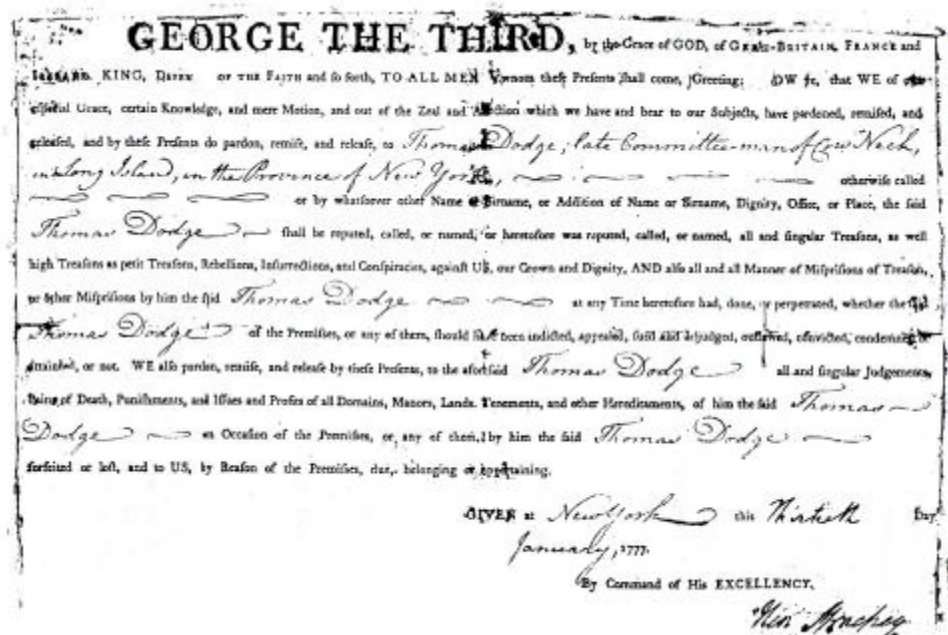 GEORGE THE THIRD, by the Grace of GOD, of GREAT-BRITAIN, FRANCE and
KING, OF THE FAITH and so forth, TO ALL MEN whom these Presents shall come, Greeting; OW ye, that WE of
especial Grace, certain Knowledge, and mere Motion, and out of the Zeal and Affection which we have and bear to our Subjects, have pardoned, remised, and
released, and by these Presents do pardon, remise, and release, to Thomas Dodge, late Committee-man of Cow Neck,
in Long Island, in the Province of New York, otherwise called
or by whatsoever other Name or Sirname, or Addition of Name or Sirname, Dignity, Office, or Place, the said
Thomas Dodge shall be reputed, called, or named, or heretofore was reputed, called, or named, all and singular Treasons, as well
high Treasons as petit Treasons, Rebellions, Insurrections, and Conspiracies, against US, our Crown and Dignity, AND also all and all Manner of Misprisions of Treason,
or other Misprisions by him the said Thomas Dodge at any Time heretofore had, done, or perpetrated, whether the said
Thomas Dodge of the Premisses, or any of them, should have been indicted, appealed, sued and adjudged, outlawed, convicted, condemned or
attainted, or not. WE also pardon, remise, and release by these Presents, to the aforesaid Thomas Dodge all and singular Judgements,
Pains of Death, Punishments, and Issues and Profits of all Domains, Manors, Lands, Tenements, and other Hereditaments, of him the said Thomas
Dodge on Occasion of the Premisses, or any of them, by him the said Thomas Dodge
forfeited or lost, and to US, by Reason of the Premisses, due, belonging or appertaining.
GIVEN at New York this Thirtieth Day
January, 1777.
By Command of His EXCELLENCY,